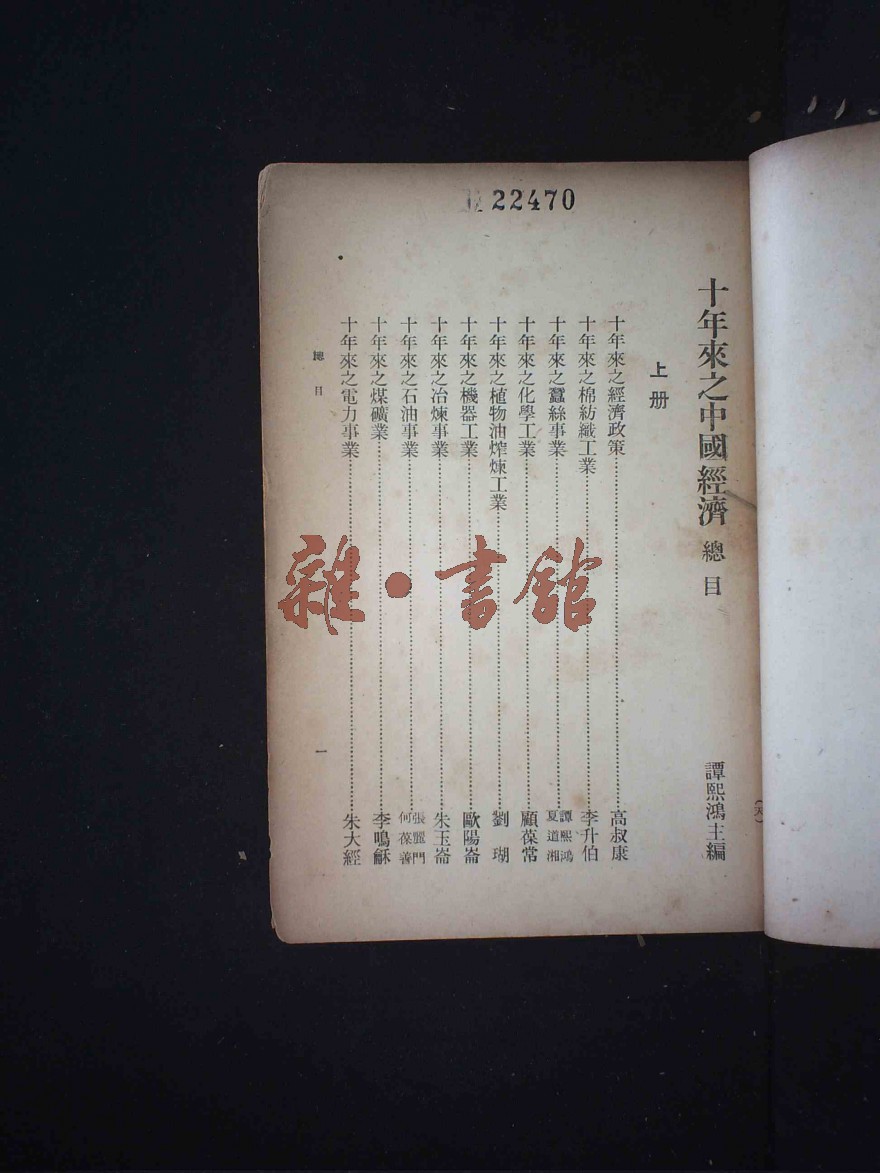 22470
十年來之中國經濟 總目
譚熙鴻主編
上册
十年來之經濟政策 高叔康
十年來之棉紡織工業 李升伯
十年來之蠶絲事業 譚熙鴻 夏道湘
十年來之化學工業 顧葆常
十年來之植物油煠煉工業 劉瑚
十年來之機器工業 歐陽崙
十年來之冶煉事業 朱玉崙
十年來之石油事業 張麗門 何葆善
十年來之煤礦業 李鳴龢
十年來之電力事業 朱大經
總目
一
雜·書館